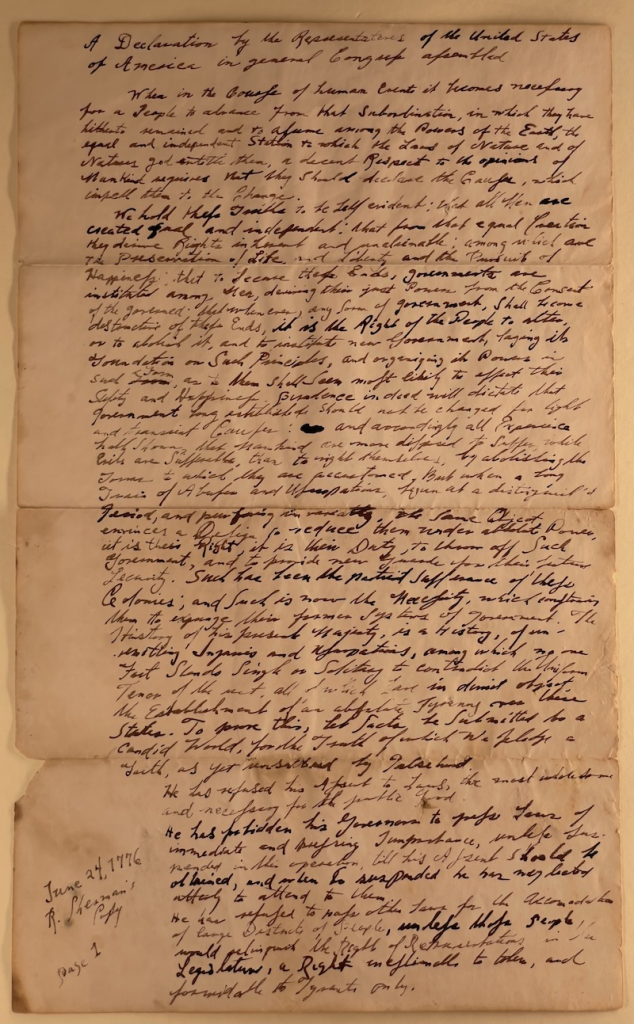 A Declaration by the Representatives of the United States
of America in general Congress assembled
When in the Course of human Events it becomes necessary
for a People to advance from that Subordination, in which they have
hitherto remained and to assume among the Powers of the Earth, the
equal and independent Station to which the Laws of Nature and of
Natures god entitle them, a decent Respect to the opinions of
Mankind requires that they Should declare the Causes, which
impell them to the Change.
We hold these Truths to be Self evident; that all Men are
created equal and independent; that from that equal Creation
they derive Rights inherent and unalienable; among which are
the Preservation of Life and Liberty and the Pursuit of
Happiness; that to Secure these Ends, governments are
instituted among Men, deriving their just Powers from the Consent
of the governed; that whenever, any form of government, Shall become
destructive of these Ends, it is the Right of the People to alter,
or to abolish it, and to institute new Government, laying its
Foundation on Such Principles, and organizing its Powers in
Such Form, as to them Shall Seem most likely to effect their
Safety and Happiness. Prudence indeed will dictate that
Government long established should not be changed for light
and transient Causes: and accordingly all Experience
hath Shown, that Mankind are more disposed to Suffer, while
Evils are Sufferable, than to right themselves, by abolishing the
Forms to which they are accustomed. But when a long
Train of Abuses and Usurpations, begun at a distinguish'd
Period, and pursuing invariably, the Same Object,
envinces a Design to reduce them under absolute Power,
it is their Right, it is their Duty, to throw off Such
Government, and to provide new Guards for their future
Security. Such has been the patient Sufferance of these
Colonies; and Such is now the Necessity, which constrains
them to expunge their former Systems of Government. The
History of his present Majesty, is a History, of un-
remitting Injuries and Usurpations, among which no one
Fact Stands Single or Solitary to contradict the Uniform
Tenor of the rest, all of which have in direct object,
the Establishment of an absolute Tyranny over these
States. To prove this, let Facts be Submitted to a
Candid World, for the Truth of which We pledge a
Faith, as yet unsullied by Falsehood.
He has refused his Assent to Laws, the most wholesome
and necessary for the public Good.
He has forbidden his Governors to pass Laws of
immediate and pressing Importance, unless Sus-
pended in their operation, till his Assent Should be
obtained, and when So suspended he has neglected
utterly to attend to them.
He has refused to pass other Laws for the Accomodation
of large Districts of People, unless those People,
would relinquish the Right of Representation in the
Legislature, a Right inestimable to them, and
formidable to Tyrants only.
June 24, 1776
R. Sherman's
Copy
page 1